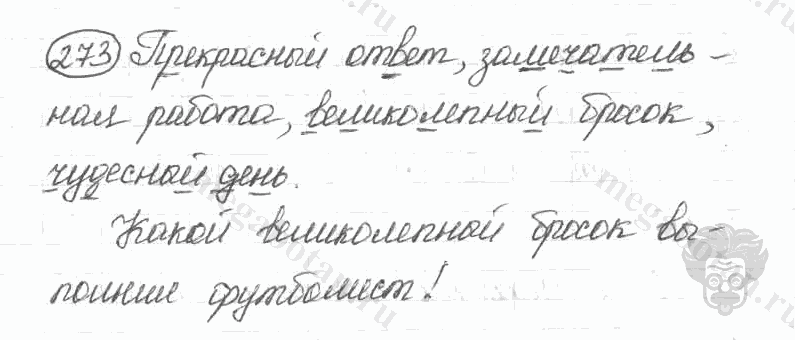 273 Прекрасный ответ, замечатель-
ная работа, великолепный бросок,
чудесный день.
Какой великолепный бросок вы-
полнил футболист!